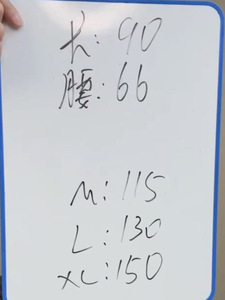 长:90
腰:66
M:115
L:130
XL:150